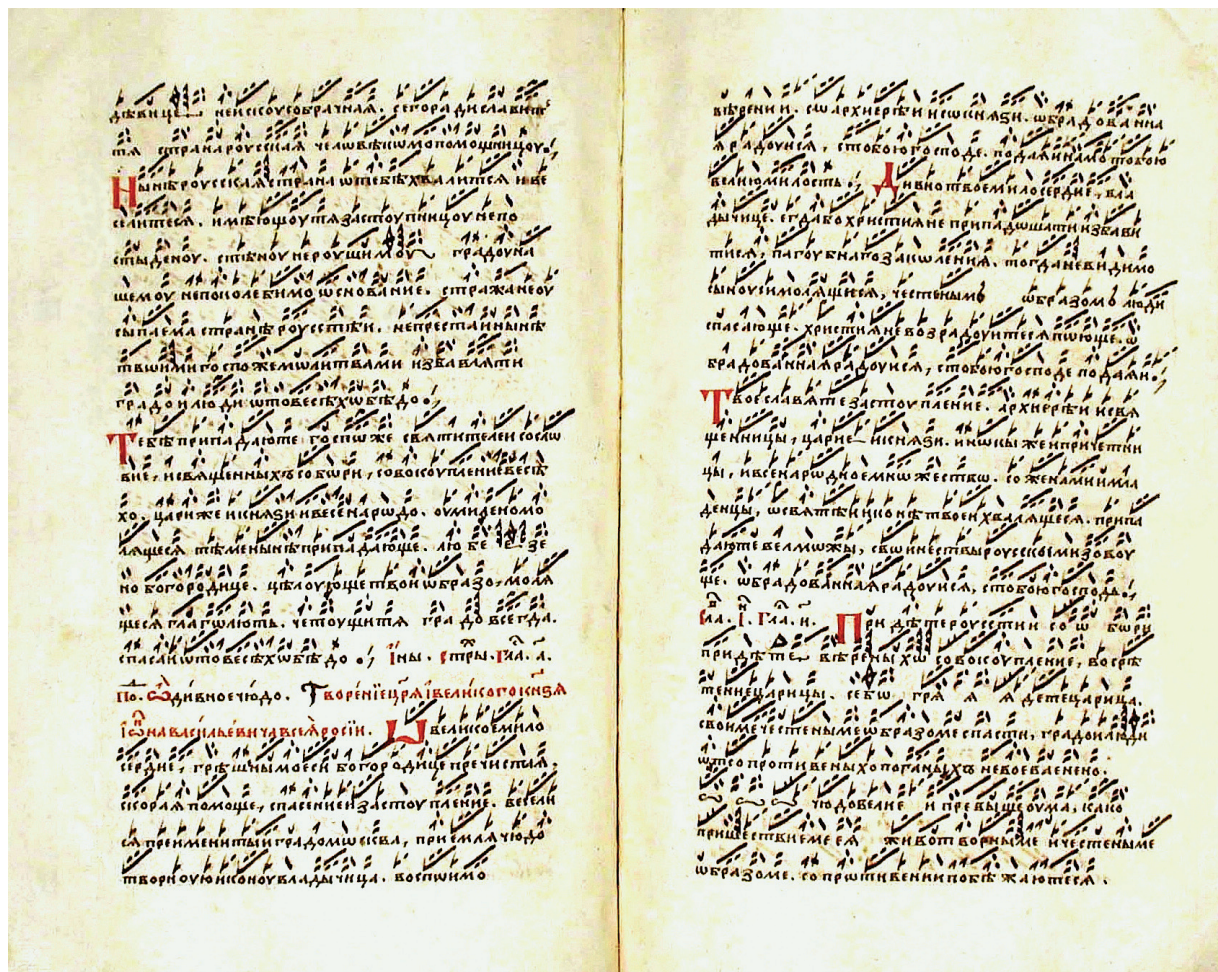 дѣвице неискоусобрачная. сегорадиславите
тя странароусская человѣкомопомощницоу.
Нынѣроусскаястрана ѡтебѣхвалится иве
селитеся. имѣющоутязастоупницоунепо
стыденоу. стѣноунероушимоу градоуна
шемоу непоколебимоѡснование. стражанеоу
сыпаема странѣроусстѣи. непрестаинынѣ
твѡимигоспожемѡлитвами избавляти
градоилюдиѡтовесѣхѡбѣдо.
Тебѣприпадаюте госпѡже святителеисосло
вие, исвященныхъсобѡри, совокоуплениевесѣ
хо. цариже икнязи ивесенарѡдо. оумиленомо
лящеся тѣменынѣприпадающе. любе е зе
но богородице. цѣлоующетвоиѡбразо, моля
щеся глагѡлють. четоущитя градовсегда.
спасаиѡтовесѣхѡбѣдо. іны. стры. гла. а.
по. Ѡдивноечюдо. Твореніецряівеликогокнѕя
іѡнавасильевичавсеяросіи. Ѡ великоемило
сердие, грѣшнымоеси богородицепречистая.
скораяпомоще, спасениеизастоупление. весели
ся преименитыиградомѡсква, приемлячюдо
творноуюиконоувладычица. воспѡимо
вѣрении. сѡархиерѣииисокняѕи. ѡбрадованна
ярадоуися, стобоюгосподе. подаяинамотобою
велиюмилость. Дивнотвоемилосердие, вла
дычице. егдабохристиянеприпадѡшатиизбави
тися, пагоубнагозаколения. тогданевидимо
сыноусимолящися, честенымо ѡбразомо люди
спасающе. християневозрадоуитесяпѡюще. ѡ
брадованнаярадоуися, стобоюгосподе подаяи.
Твоеславятезастоупление. архиерѣи исвя
щенницы, царие икняѕи. инѡкы жеипричетни
цы, ивсенарѡдноемнѡжествѡ. со женамиимла
денцы, ѡсвятѣииконѣтвоеихвалящеся. припа
даютевелмѡжы, свѡинествыроусскоемизовоу
ще. ѡбрадованнаярадоуися, стобоюгосподь.
сла. і. гла. и. Придѣтероусстии со ѡ бѡри
придѣте вѣреныхѡ совокоупление, восрѣ
тениецарицы. себѡ гря я ядетецарица.
своимечестенымеѡбразомеспасти, градоилюди
ѡтсопротивеныхопоганыхъ невоевaeнено.
чюдовелие ипревышеоума, како
пришествиемеея животворныме ичестеныме
ѡбразоме. сопротивениипобѣжаютеся.